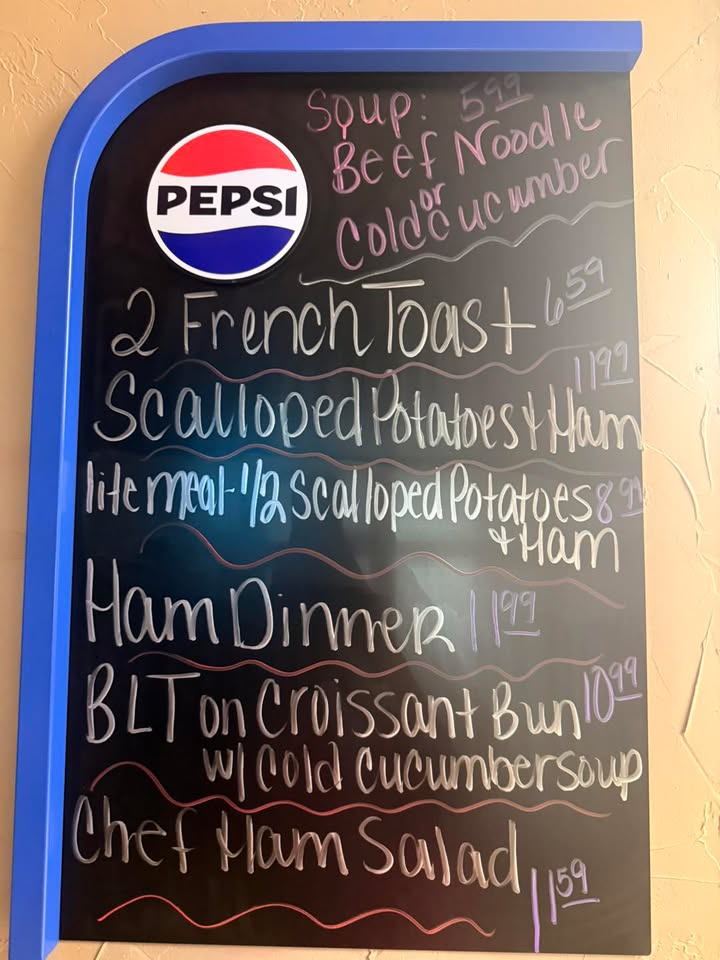 PEPSI
Soup: 5.99
Beef Noodle
or
Cold Cucumber
2 French Toast 6.59
11.99
Scalloped Potatoes & Ham
lite meal-1/2 Scalloped Potatoes 8.99
& Ham
Ham Dinner 11.99
BLT on Croissant Bun 10.99
w/ Cold Cucumber soup
Chef Ham Salad
11.59